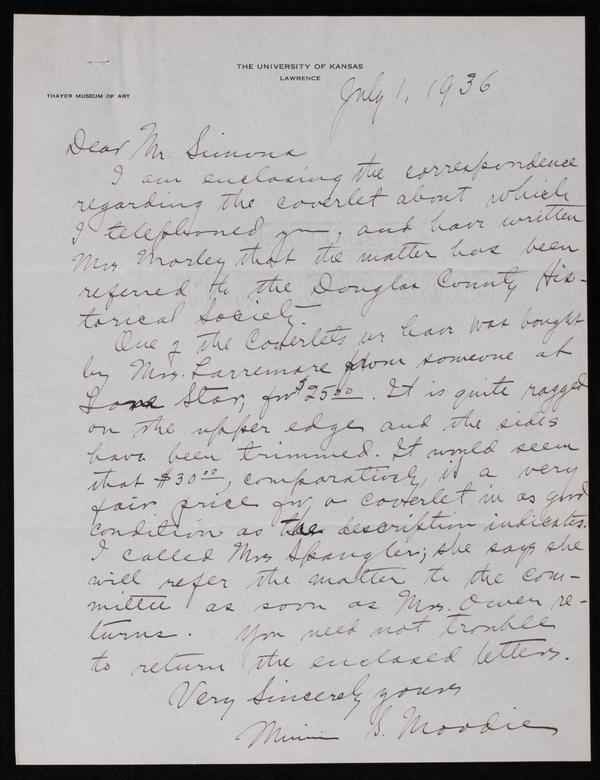 THE UNIVERSITY OF KANSAS
LAWRENCE
THAYER MUSEUM OF ART
July 1, 1936
Dear Mr. Simons
I am enclosing the correspondence
regarding the coverlet about which
I telephoned you, and have written
Mrs Morley that the matter has been
referred to the Douglas County His-
torical Society.
One of the Coverlets we have was bought
by Mrs. Larremore from someone at
Lone Star, for $25.00. It is quite ragged
on the upper edge and the sides
have been trimmed. It would seem
that $30.00, comparatively, is a very
fair price for a coverlet in as good
condition as the description indicates.
I called Mrs Spangler; she says she
will refer the matter to the com-
mittee as soon as Mrs. Owen re-
turns. You need not trouble
to return the enclosed letters.
Very Sincerely yours
Minnie S. Moodie